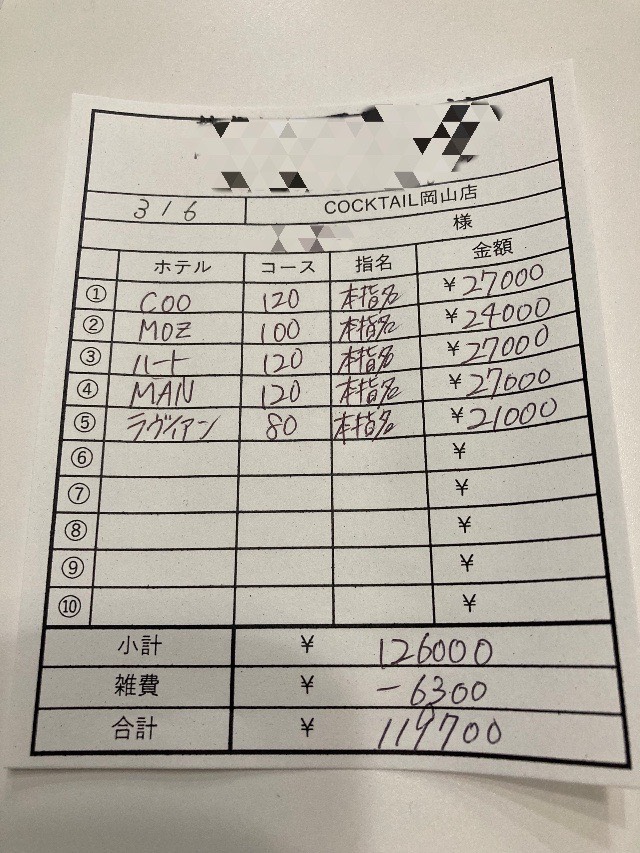 316 COCKTAIL岡山店
様
ホテル コース 指名 金額
① COO 120 本指名 ¥27000
② MOZ 100 本指名 ¥24000
③ ハート 120 本指名 ¥27000
④ MAN 120 本指名 ¥27000
⑤ ラヴィアン 80 本指名 ¥21000
⑥ ¥
⑦ ¥
⑧ ¥
⑨ ¥
⑩ ¥
小計 ¥ 126000
雑費 ¥ -6300
合計 ¥ 119700